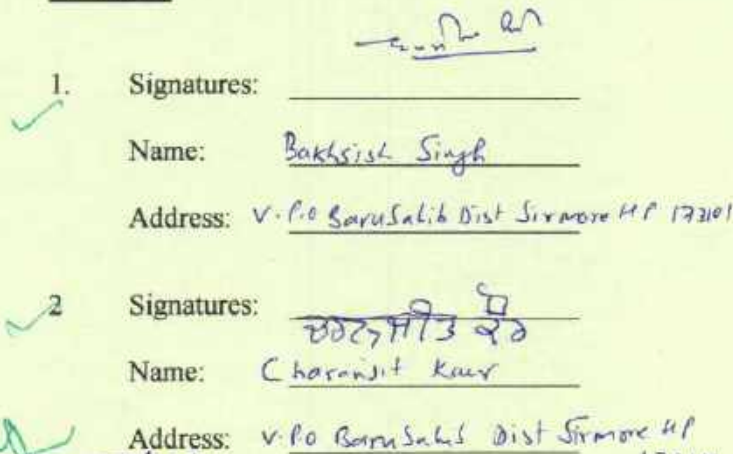 1. Signatures:
Name: Bakhsish Singh
Address: V.P.O BaruSahib Dist Sirmore HP 173101
2 Signatures: ਚਰਨਜੀਤ ਕੌਰ
Name: Charanjit Kaur
Address: V.P.O BaruSahib Dist Sirmore HP